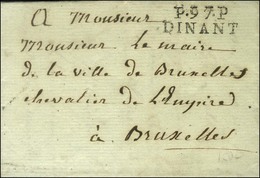 A Monsieur
P.97.P
DINANT
Monsieur Le maire
de la ville de Bruxelles
chevalier de L'Empire
à Bruxelles